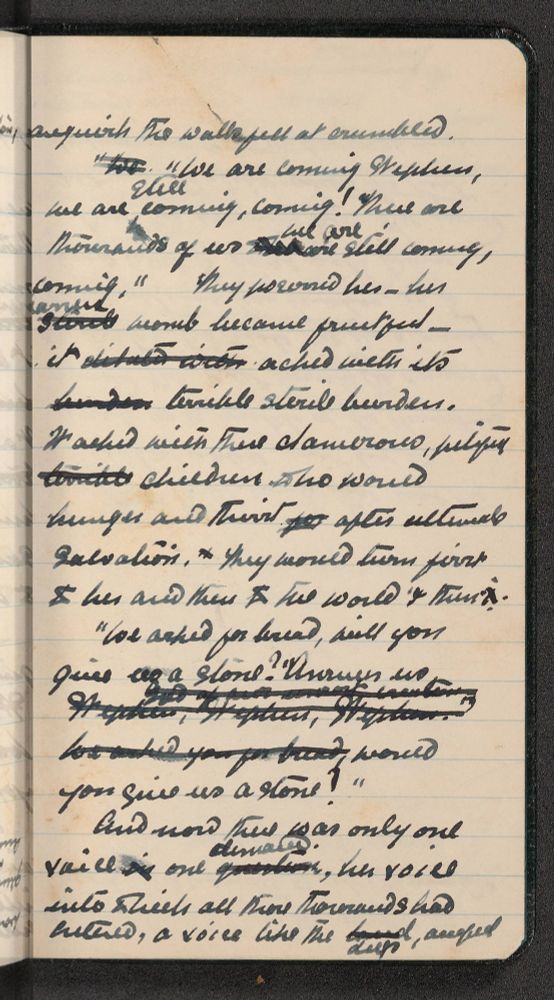 anguish the walls fell & crumbled.
"We. "We are coming Stephen,
still
we are coming, coming! There are
we are
thousands of us still coming,
coming," They possessed her – her
barren
sterile womb became fruitful –
it dilated with ached with its
burden terrible sterile burden.
It ached with these clamorous, pitiful
terrible children who would
hunger and thirst for after ultimate
salvation. They would turn first
to her and then to the world & then
"We asked for bread, will you
give us a stone? Answer us
Stephen, Stephen, Stephen."
We asked you for bread, would
you give us a stone!"
And now there was only one
demand
voice in one question, her voice
into which all those thousands had
entered, a voice like the
deep, angry